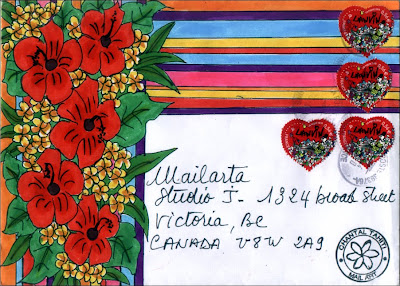 Mailarta
Studio J - 1324 broad Street
Victoria, BC
CANADA V8W 2A9
CHANTAL TAHITI
MAIL ART